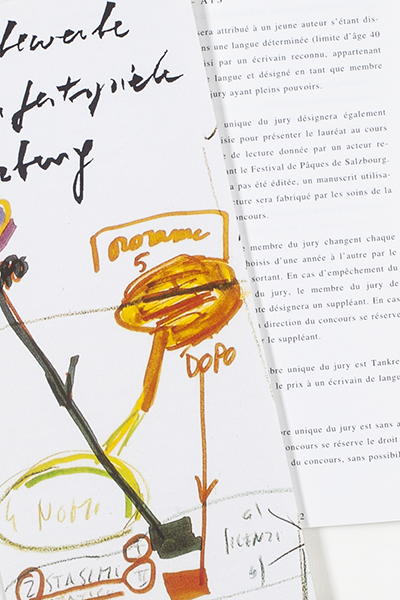 bewerbe
erfestspiele
zburg
5
DOPO
4 NODI
LICENZI
2 STASIMI
I
II
sera attribué à un jeune auteur s'étant dis-
ns une langue déterminée (limite d'âge 40
isi par un écrivain reconnu, appartenant
e langue et désigné en tant que membre
jury ayant pleins pouvoirs.
unique du jury désignera également
isie pour présenter le lauréat au cours
e de lecture donnée par un acteur re-
nt le Festival de Pâques de Salzbourg.
a pas été éditée, un manuscrit utilisa-
cture sera fabriqué par les soins de la
oncours.
e membre du jury changent chaque
hoisis d'une année à l'autre par le
sortant. En cas d'empêchement du
du jury, le membre du jury de
te désignera un suppléant. En cas
a direction du concours se réserve
r le suppléant.
bre unique du jury est Tankre
le prix à un écrivain de langu
bre unique du jury est sans a
oncours se réserve le droit
du concours, sans possibil
2